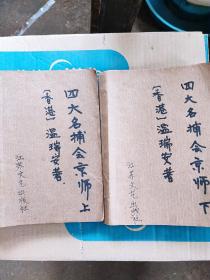 四大名捕会京师 上
［香港］温瑞安著
江苏文艺出版社
四大名捕会京师 下
［香港］温瑞安著
江苏文艺出版社